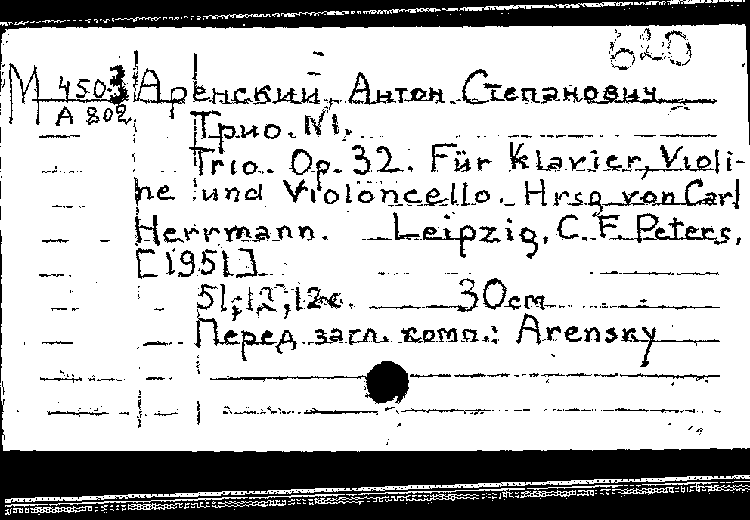 620
М 4503 Аренский, Антон Степанович
А 802
Трио. №1.
Trio. Op. 32. Für Klavier, Violi-
ne und Violoncello. Hrsg von Carl
Herrmann. Leipzig, C. F. Peters,
[1951]
51; 12; 12с. 30 cm
Перед загл. комп.: Arensky